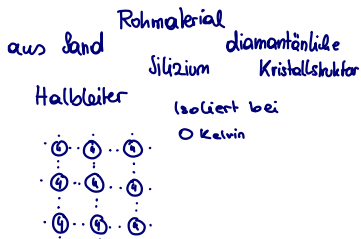 Rohmaterial
aus Sand
diamantänliche
Silizium
Kristallstruktur
Halbleiter
Isoliert bei
0 Kelvin
4 4 4
4 4 4
4 4 4